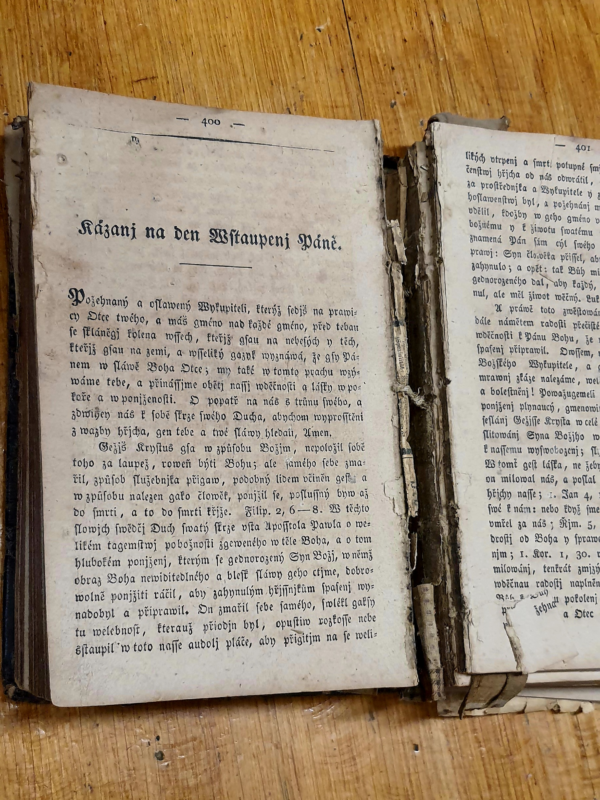 — 400 —
Kázanj na den Wstaupenj Páně.
Požehnaný a oslawený Wykupiteli, kterýž sedjš na prawi-
cy Otce twého, a máš gméno nad každé gméno, před tebau
se skláněgj kolena wssech, kteřjž gsau na nebesých y těch,
kteřjž gsau na zemi, a wsseliký gazyk wyznáwá, že gsy Pá-
nem w sláwě Boha Otce; my také w tomto prachu wzý-
wáme tebe, a přinássjme oběti nassj wděčnosti a lásky w po-
koře a w ponjženosti. O popatř na nás s trůnu swého, a
zdwihey nás k sobě skrze swého Ducha, abychom wyprosstěni
z wazby hřjcha, gen tebe a twé sláwy hledali, Amen.
Gežjš Krystus gsa w způsobu Božjm, nepoložil sobě
toho za laupež, roweň býti Bohu; ale samého sebe zma-
řil, způsob služebnjka přigaw, podobný lidem včiněn gest a
w způsobu nalezen gako člowěk, ponjžil se, poslussný byw až
do smrti, a to do smrti křjže. Filip. 2, 6—8. W těchto
slowjch swědčj Duch swatý skrze vsta Apossstola Pawla o we-
likém tagemstwj pobožnosti zgeweného w těle Boha, a o tom
hlubokém ponjženj, kterým se gednorozený Syn Božj, w němž
obraz Boha newiditedlného a blesk sláwy geho ctjme, dobro-
wolně ponjžiti ráčil, aby zahynulým hřjssnjkům spasenj wy-
nadobyl a připrawil. On zmařil sebe samého, swlékl gaksy
tu welebnost, kterauž přiodjn byl, opustiw rozkosse nebe
sstaupil w toto nasse audolj pláče, aby přigitjm na se weli-
— 401
likých vtrpenj a smrti potupné
čenstwj hřjcha od nás odwrátil,
za prostřednjka a Wykupitele
hoslawenstwj byl, a požehnánj
vdělil, kdožby w geho gméno
božnému y k žiwotu swatému
znamená Pán sám cýl swého
prawj: Syn člowěka přissel, aby
zahynulo; a opět: tak Bůh
gednorozeného dal, aby každý,
nul, ale měl žiwot wěčný. Luk
A práwě toto zwěstowánj
dále námětem radosti přečistě
wděčnosti k Pánu Bohu, že
spasenj připrawil. Owssem,
Božského Wykupitele, a
mrawnj zkáze nalezáme,
a bolestněnj! Powažugemeli
ponjženj plynaucý,
seslánj Gežjsse Krysta w celé
slitowánj Syna Božjho
k nassemu wyswobozenj;
W tomť gest láska, ne žebychom
on milowal nás, a poslal
hřjchy nasse; 1. Jan 4,
swé k nám: nebo když
vmřel za nás; Řjm. 5,
drosti od Boha y sprawe
njm; 1. Kor. 1, 30.
milowánj, tenkrát
wděčnau radostj naplněn
pokolenj
a Otec